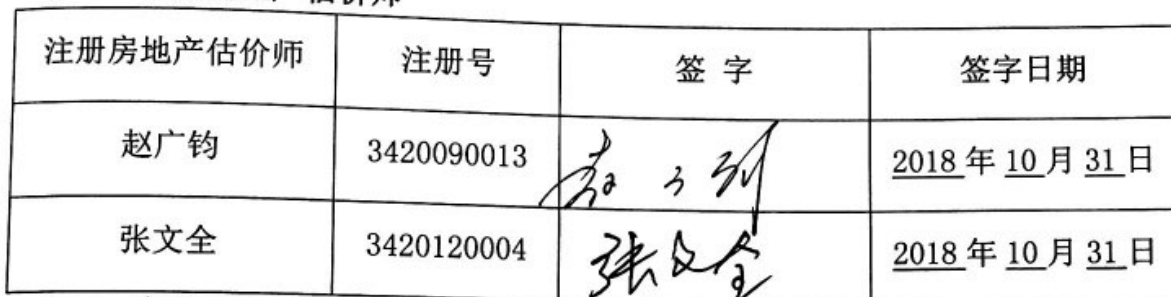 估价师
注册房地产估价师 注册号 签 字 签字日期
赵广钧 3420090013 2018 年 10 月 31 日
张文全 3420120004 张文全 2018 年 10 月 31 日